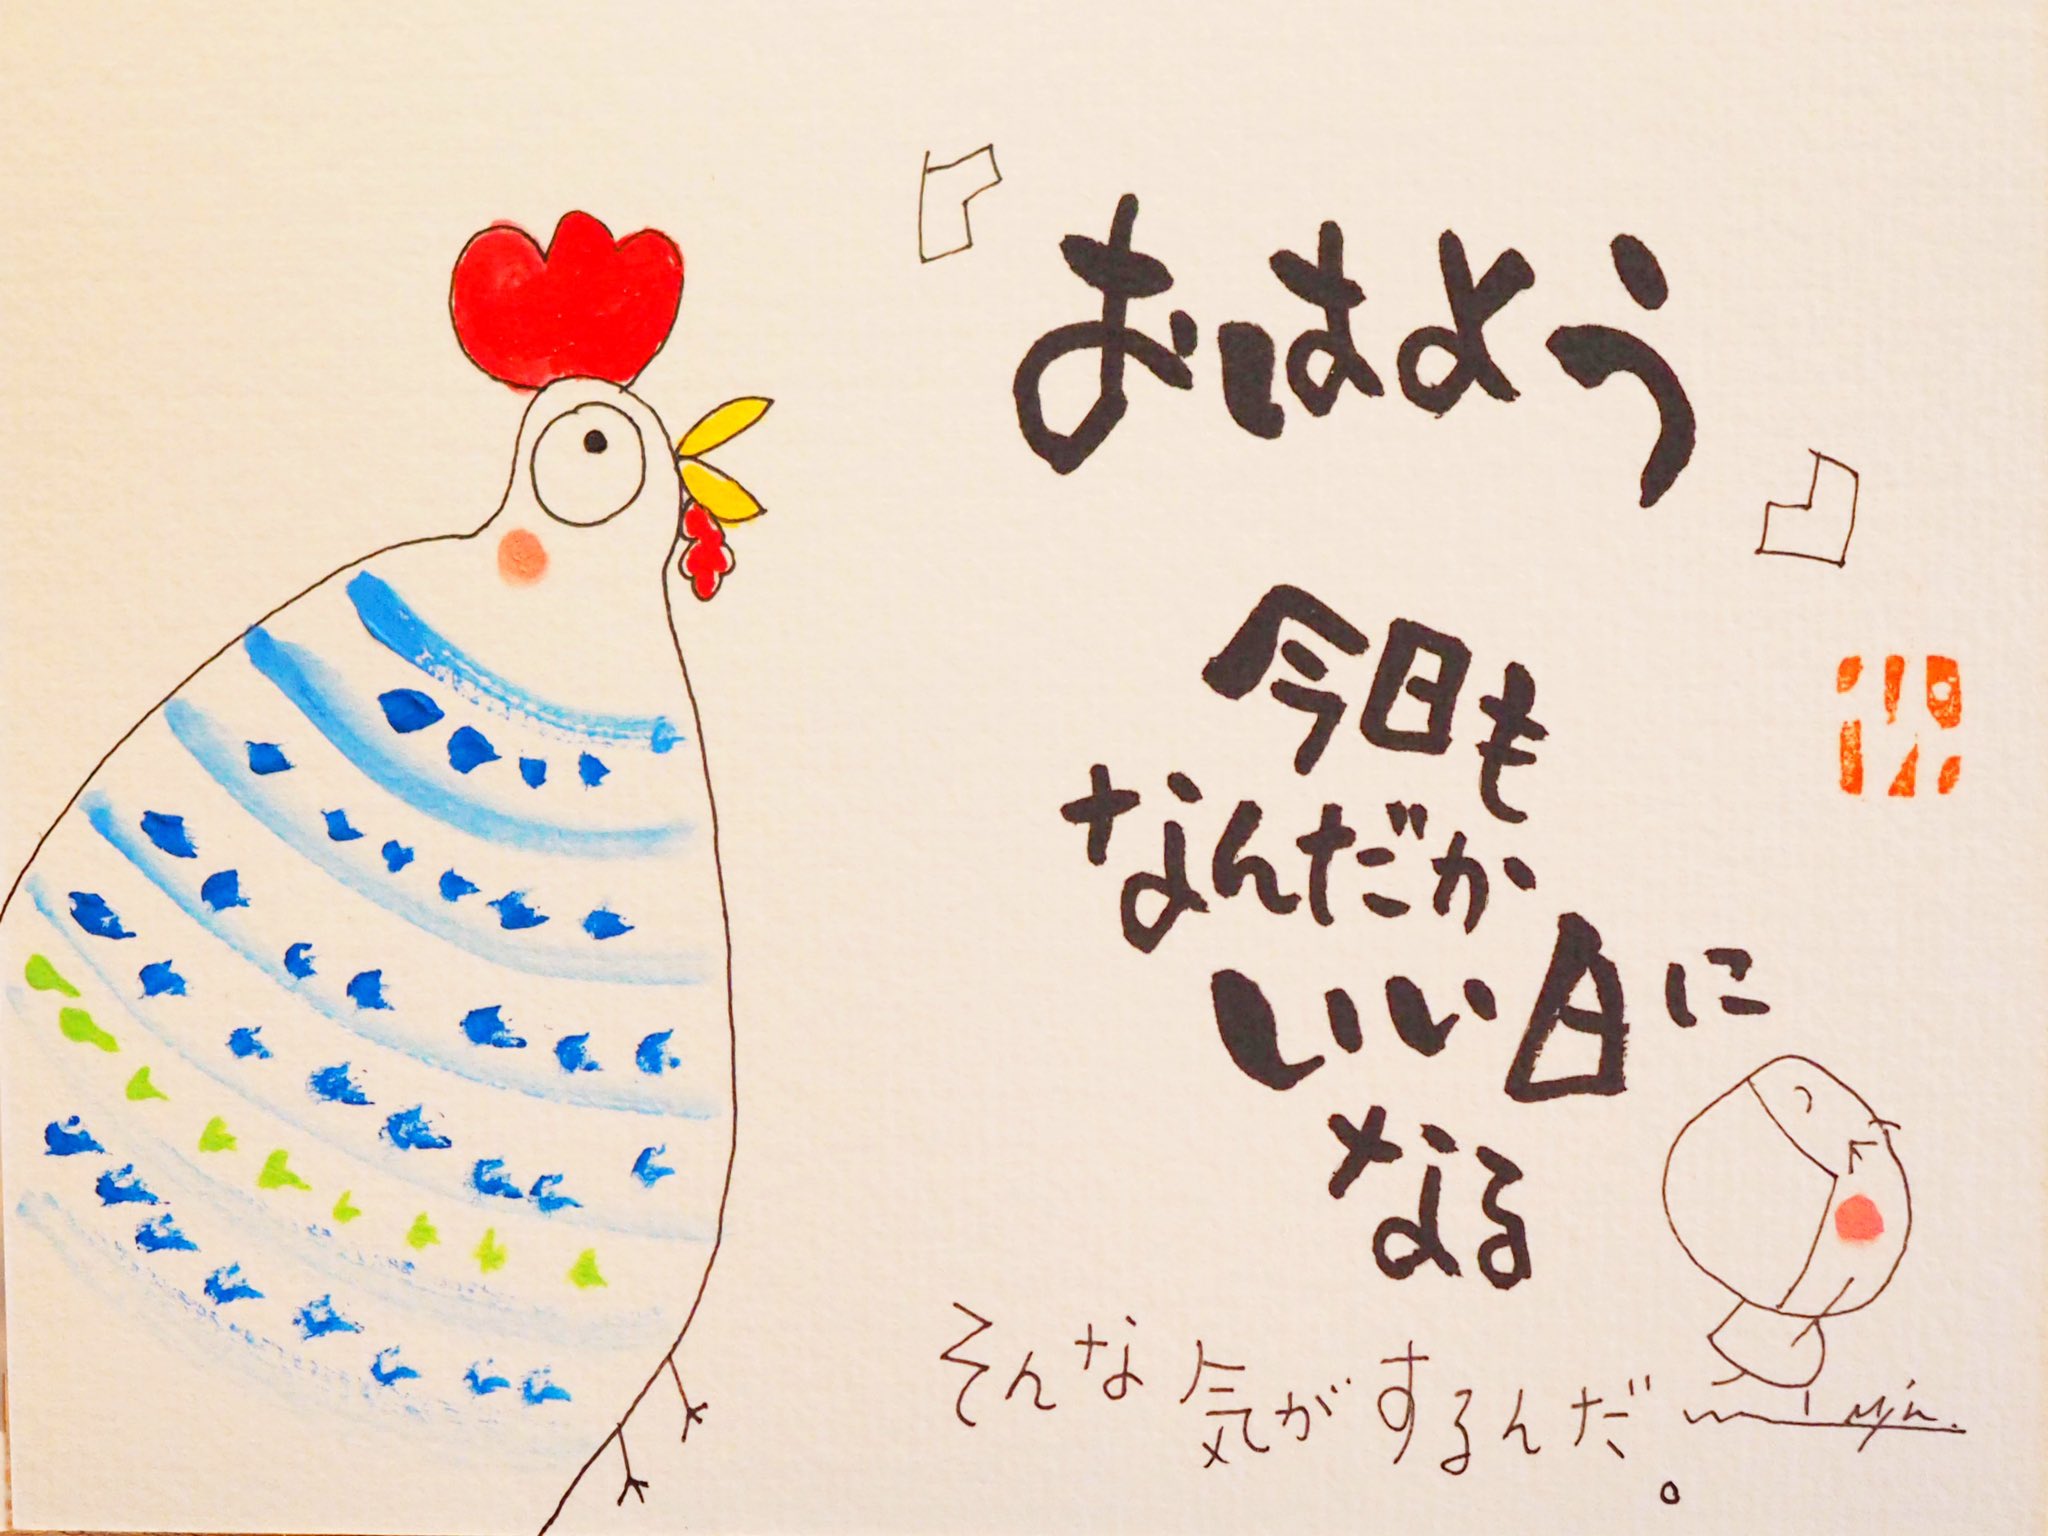 『おはよう』
今日も
なんだか
いい日に
なる
そんな気がするんだ。